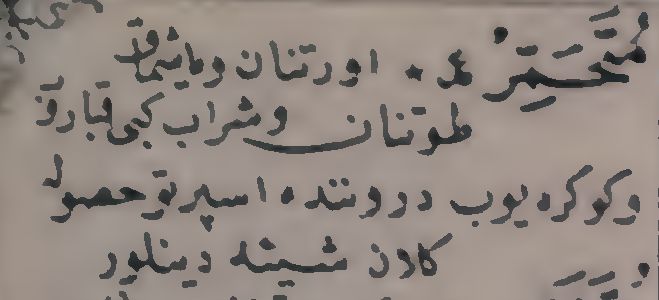 مُتَخَمِّرْ ع. اورتنان و یاشماق
طوتنان و شراب کبی قبارق
و کوکره یوب دروننده اسپرتو حصوله
کلان شیئه دینلور